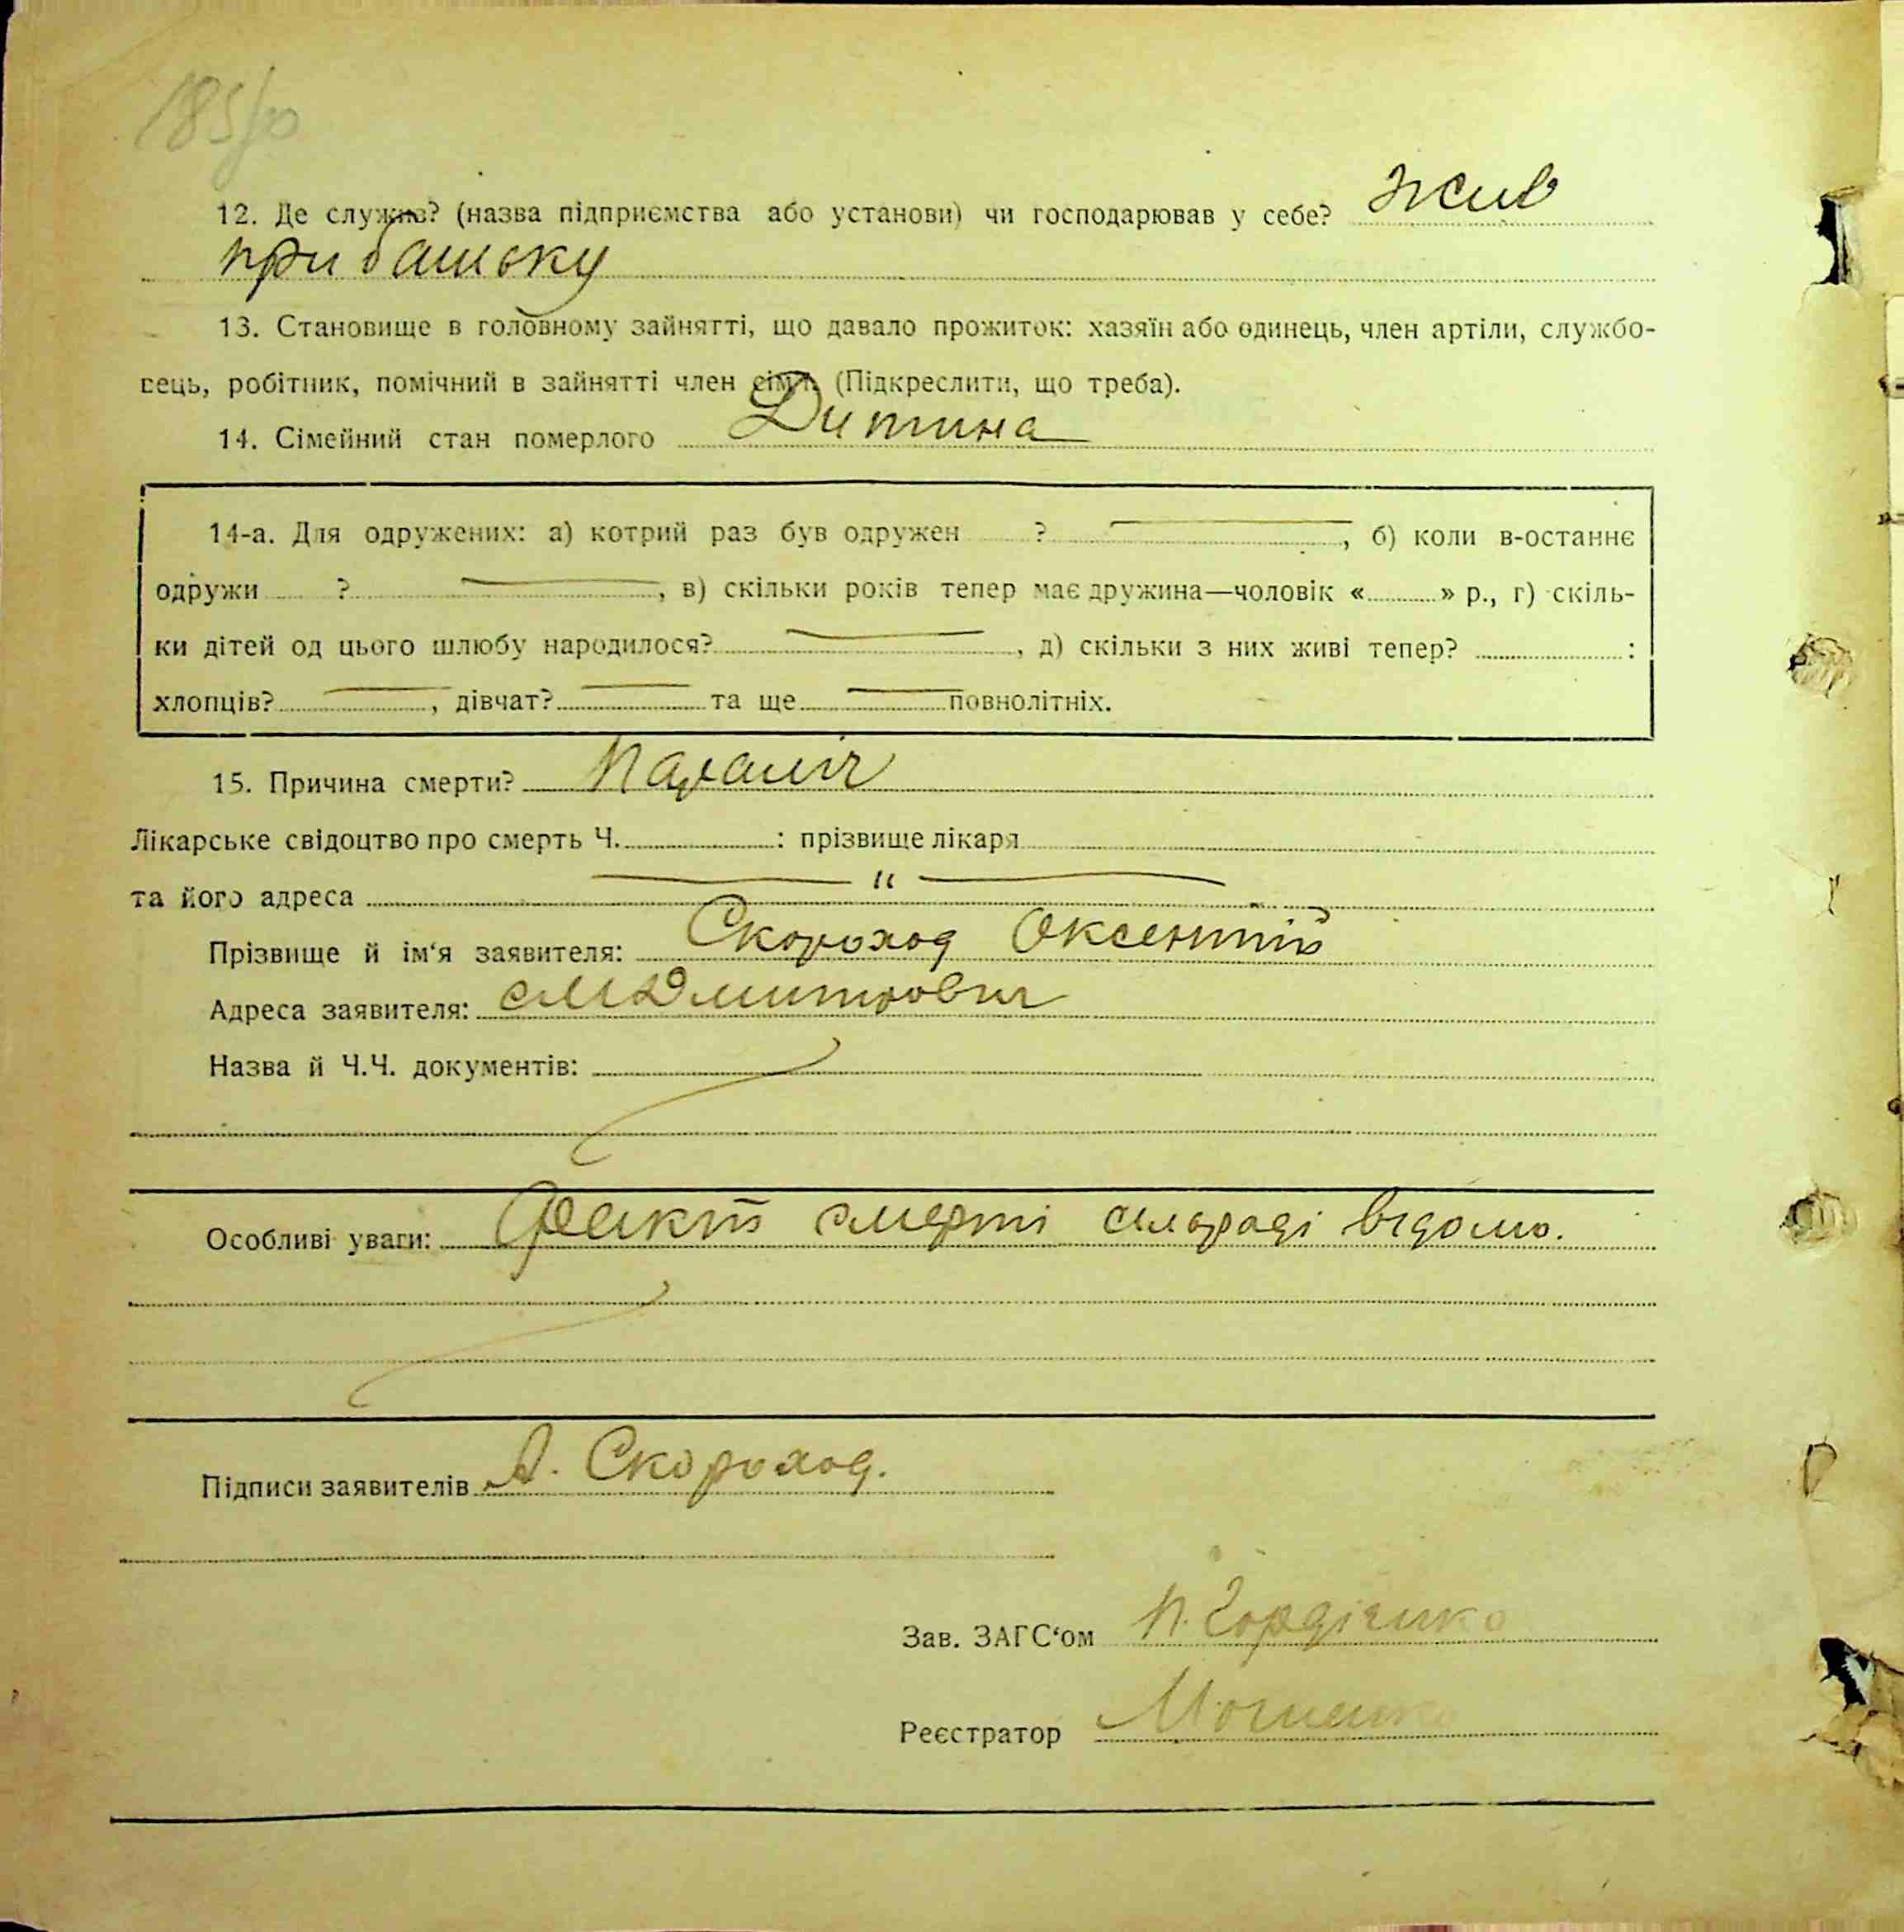 185/30
12. Де служив? (назва підприємства або установи) чи господарював у себе? жив
при батьку
13. Становище в головному зайнятті, що давало прожиток: хазяїн або одинець, член артіли, службо-
вець, робітник, помічний в зайнятті член сім'ї. (Підкреслити, що треба).
14. Сімейний стан померлого Дитина
14-а. Для одружених: а) котрий раз був одружен ? , б) коли в-останнє
одружи ? , в) скільки років тепер має дружина—чоловік « » р., г) скіль-
ки дітей од цього шлюбу народилося? , д) скільки з них живі тепер? :
хлопців? , дівчат? та ще повнолітніх.
15. Причина смерти? Параліч
Лікарське свідоцтво про смерть Ч. : прізвище лікаря
та його адреса "
Прізвище й ім'я заявителя: Скороход Оксентій
Адреса заявителя: Дмитрович
Назва й Ч.Ч. документів:
Особливі уваги: Факт смерті сільраді відомо.
Підписи заявителів А. Скороход.
Зав. ЗАГС'ом П. Гордієнко
Реєстратор